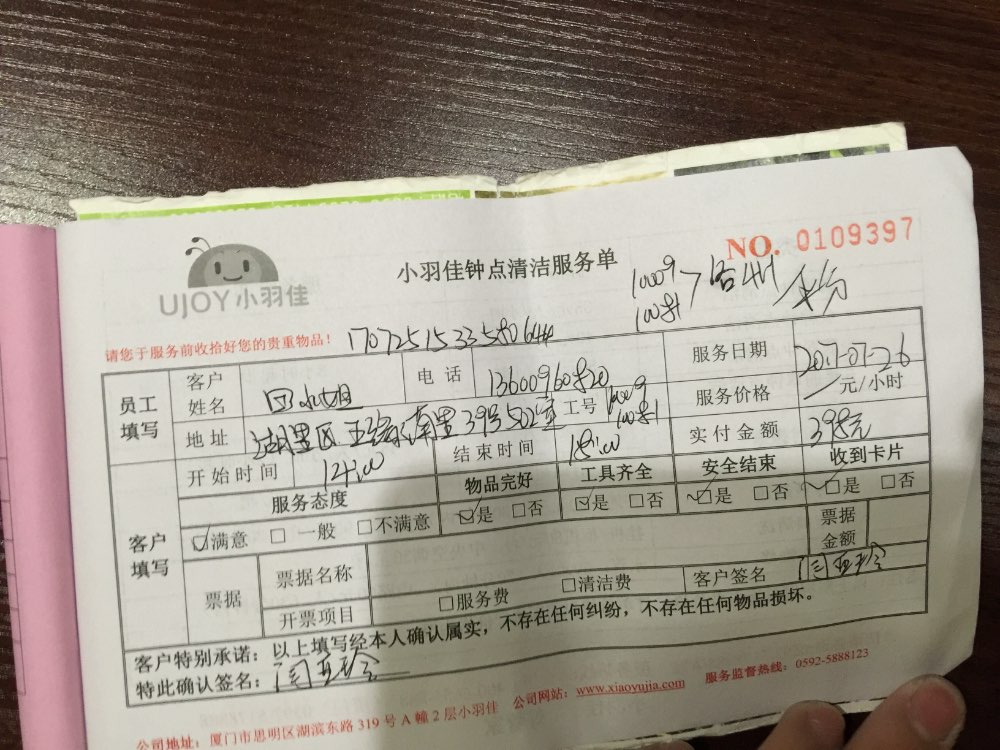 NO. 0109397
小羽佳钟点清洁服务单
UJOY小羽佳
10009
10081
请您于服务前收拾好您的贵重物品！
员工填写
客户姓名
小姐
电话
服务日期 2017-07-26
地址 湖里区
南里39号502室
工号 10009
10081
服务价格 元/小时
开始时间 14:00
结束时间 18:00
实付金额 398元
客户填写
服务态度 物品完好 工具齐全 安全结束 收到卡片
☑满意 □一般 □不满意 ☑是 □否 ☑是 □否 ☑是 □否 ☑是 □否
票据 票据名称
票据金额
开票项目 □服务费 □清洁费
客户签名
客户特别承诺：以上填写经本人确认属实，不存在任何纠纷，不存在任何物品损坏。
特此确认签名：
公司地址：厦门市思明区湖滨东路319号A幢2层小羽佳 公司网站：www.xiaoyujia.com 服务监督热线：0592-5888123